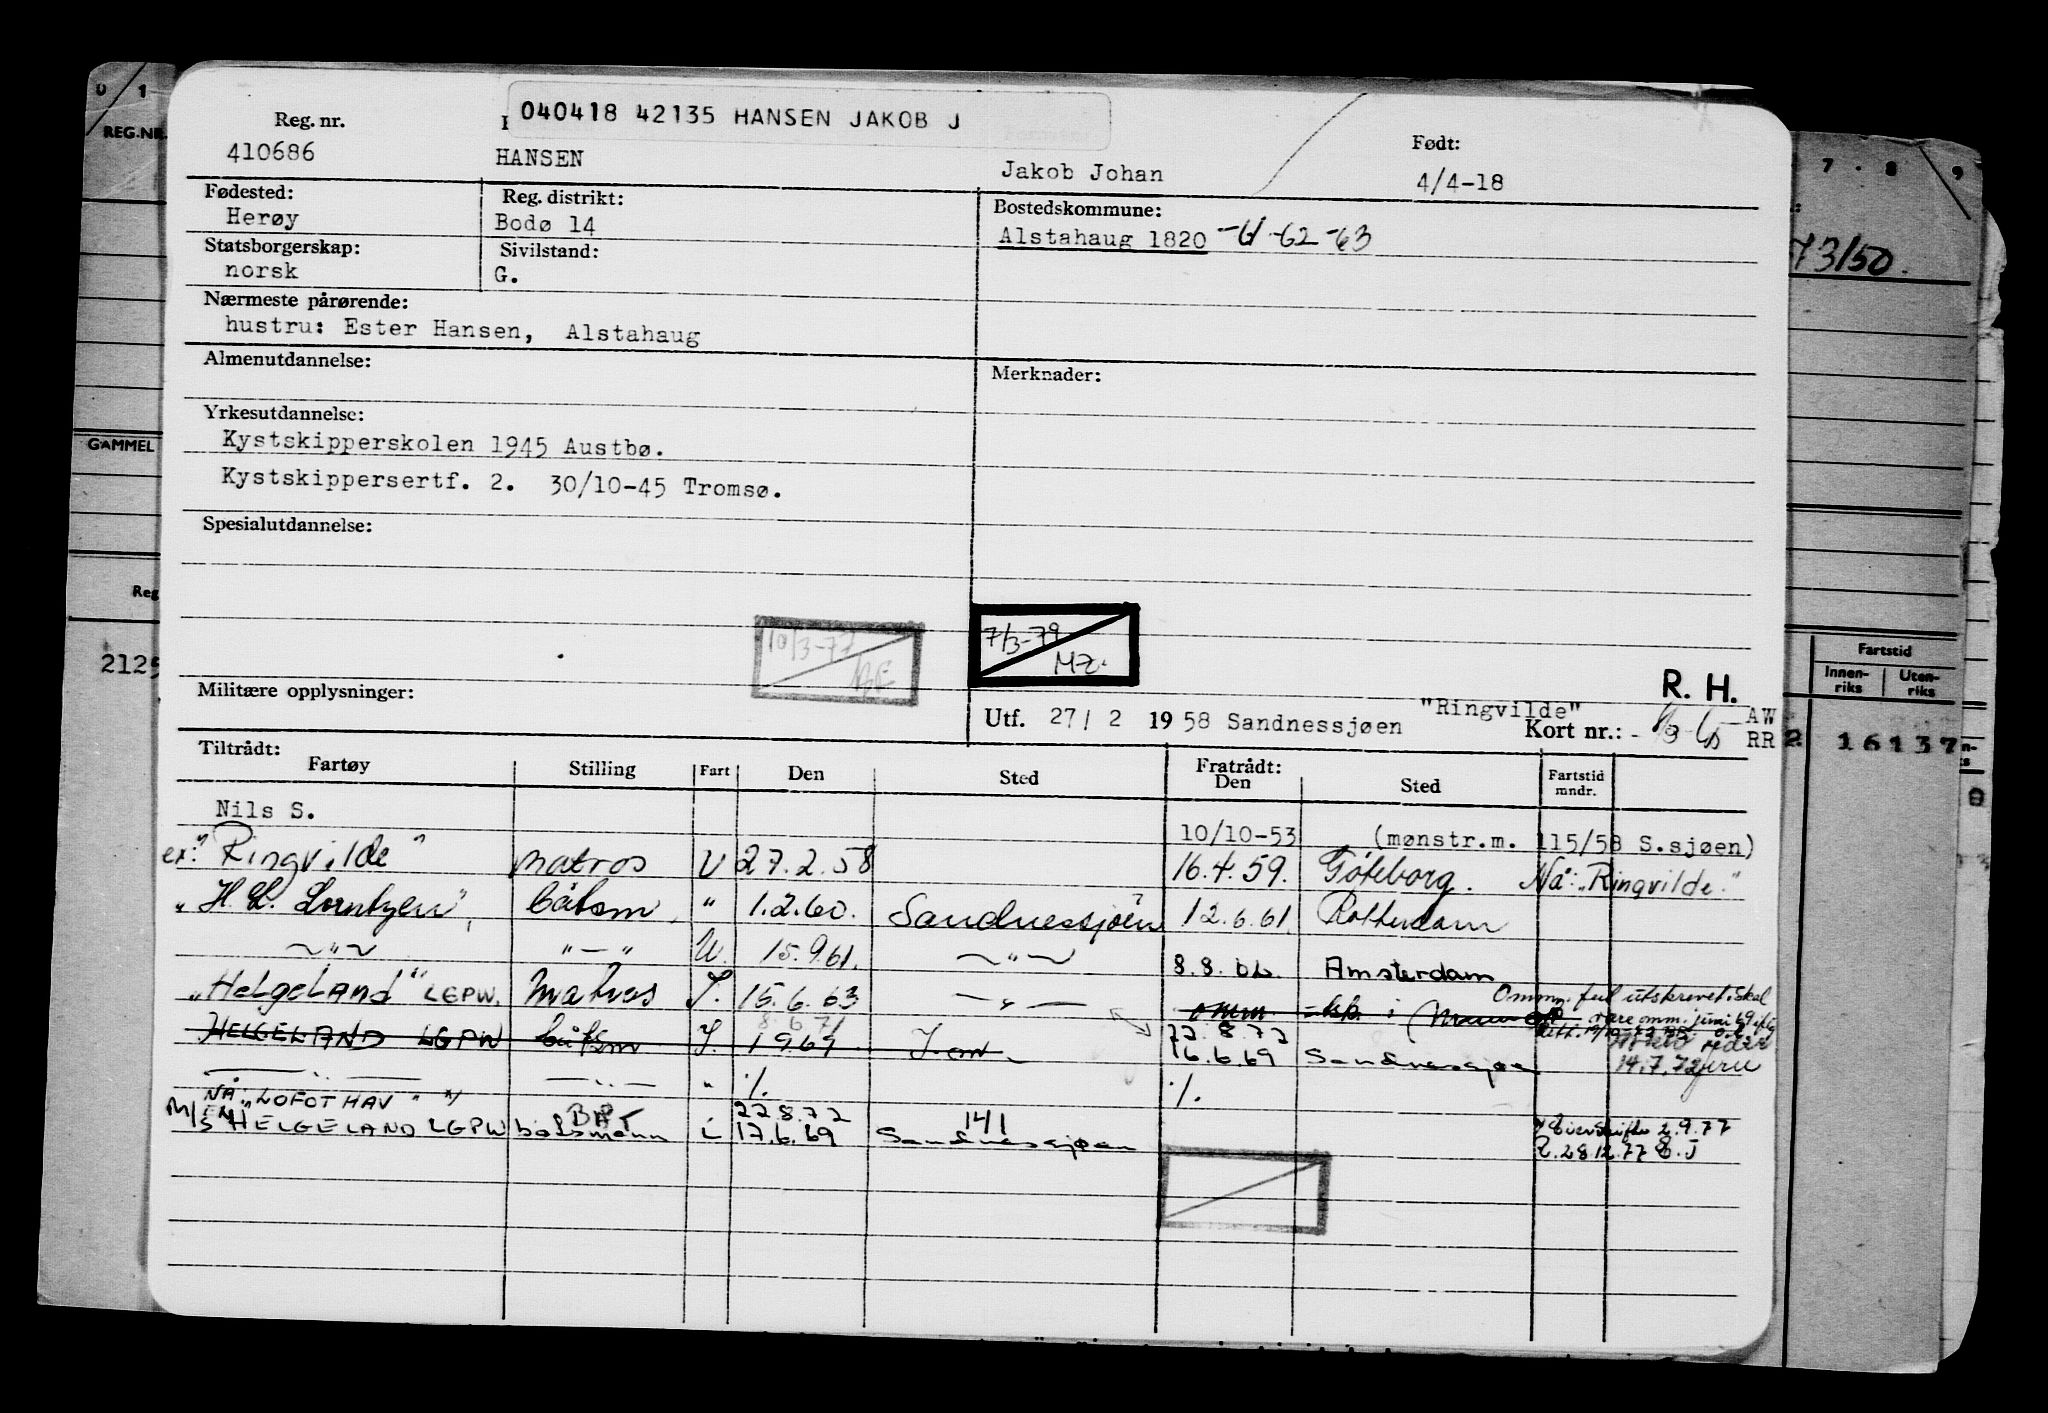 040418 42135 HANSEN JAKOB J
Reg. nr. Født:
410686 HANSEN Jakob Johan 4/4-18
Fødested: Reg. distrikt: Bostedskommune:
Herøy Bodø 14 Alstahaug 1820 -61-62-63
Statsborgerskap: Sivilstand:
norsk G.
Nærmeste pårørende:
hustru: Ester Hansen, Alstahaug
Almenutdannelse: Merknader:
Yrkesutdannelse:
Kystskipperskolen 1945 Austbø.
Kystskippersertf. 2. 30/10-45 Tromsø.
Spesialutdannelse:
10/3-77 7/3-79
MZ.
R. H.
Militære opplysninger:
Utf. 27/ 2 1958 Sandnessjøen "Ringvilde" Kort nr.: AW
RR
Tiltrådt: Fratrådt:
Fartøy Stilling Fart Den Sted Den Sted Fartstid mndr.
Nils S. 10/10-53 (mønstr.m. 115/58 S.sjøen)
ex: "Ringvilde" matros U 27.2.58 16.4.59. Göteborg. Nå: "Ringvilde."
"H. L. Lorentzen", båtsm. " 1.2.60. Sandnessjøen 12.6.61. Rotterdam
~"~ "-" U. 15.9.61. ~"~ 8.8.62. Amsterdam
"HELGELAND" LGPW. Matros I. 15.6.63 -"- omm.
Omm. feil utskrevet. skal
være omm. juni 69
8.6.71 22.8.72
HELGELAND LGPW båtsm I. 1969 16.6.69 Sandnessjøen 14.7.72
-"- -"- " ./. ./.
NÅ: "LOFOTHAV" BÅT 22.8.72 141
M/S HELGELAND LGPW båtsmann i 17.6.69 Sandnessjøen Eierskifte 2.9.77
R. 28.12.77 E.J
0 1
REG.NR.
GAMMEL
Reg
2125
7 . 8 9
73/50.
Fartstid
Innen-riks Uten-riks
2 16137